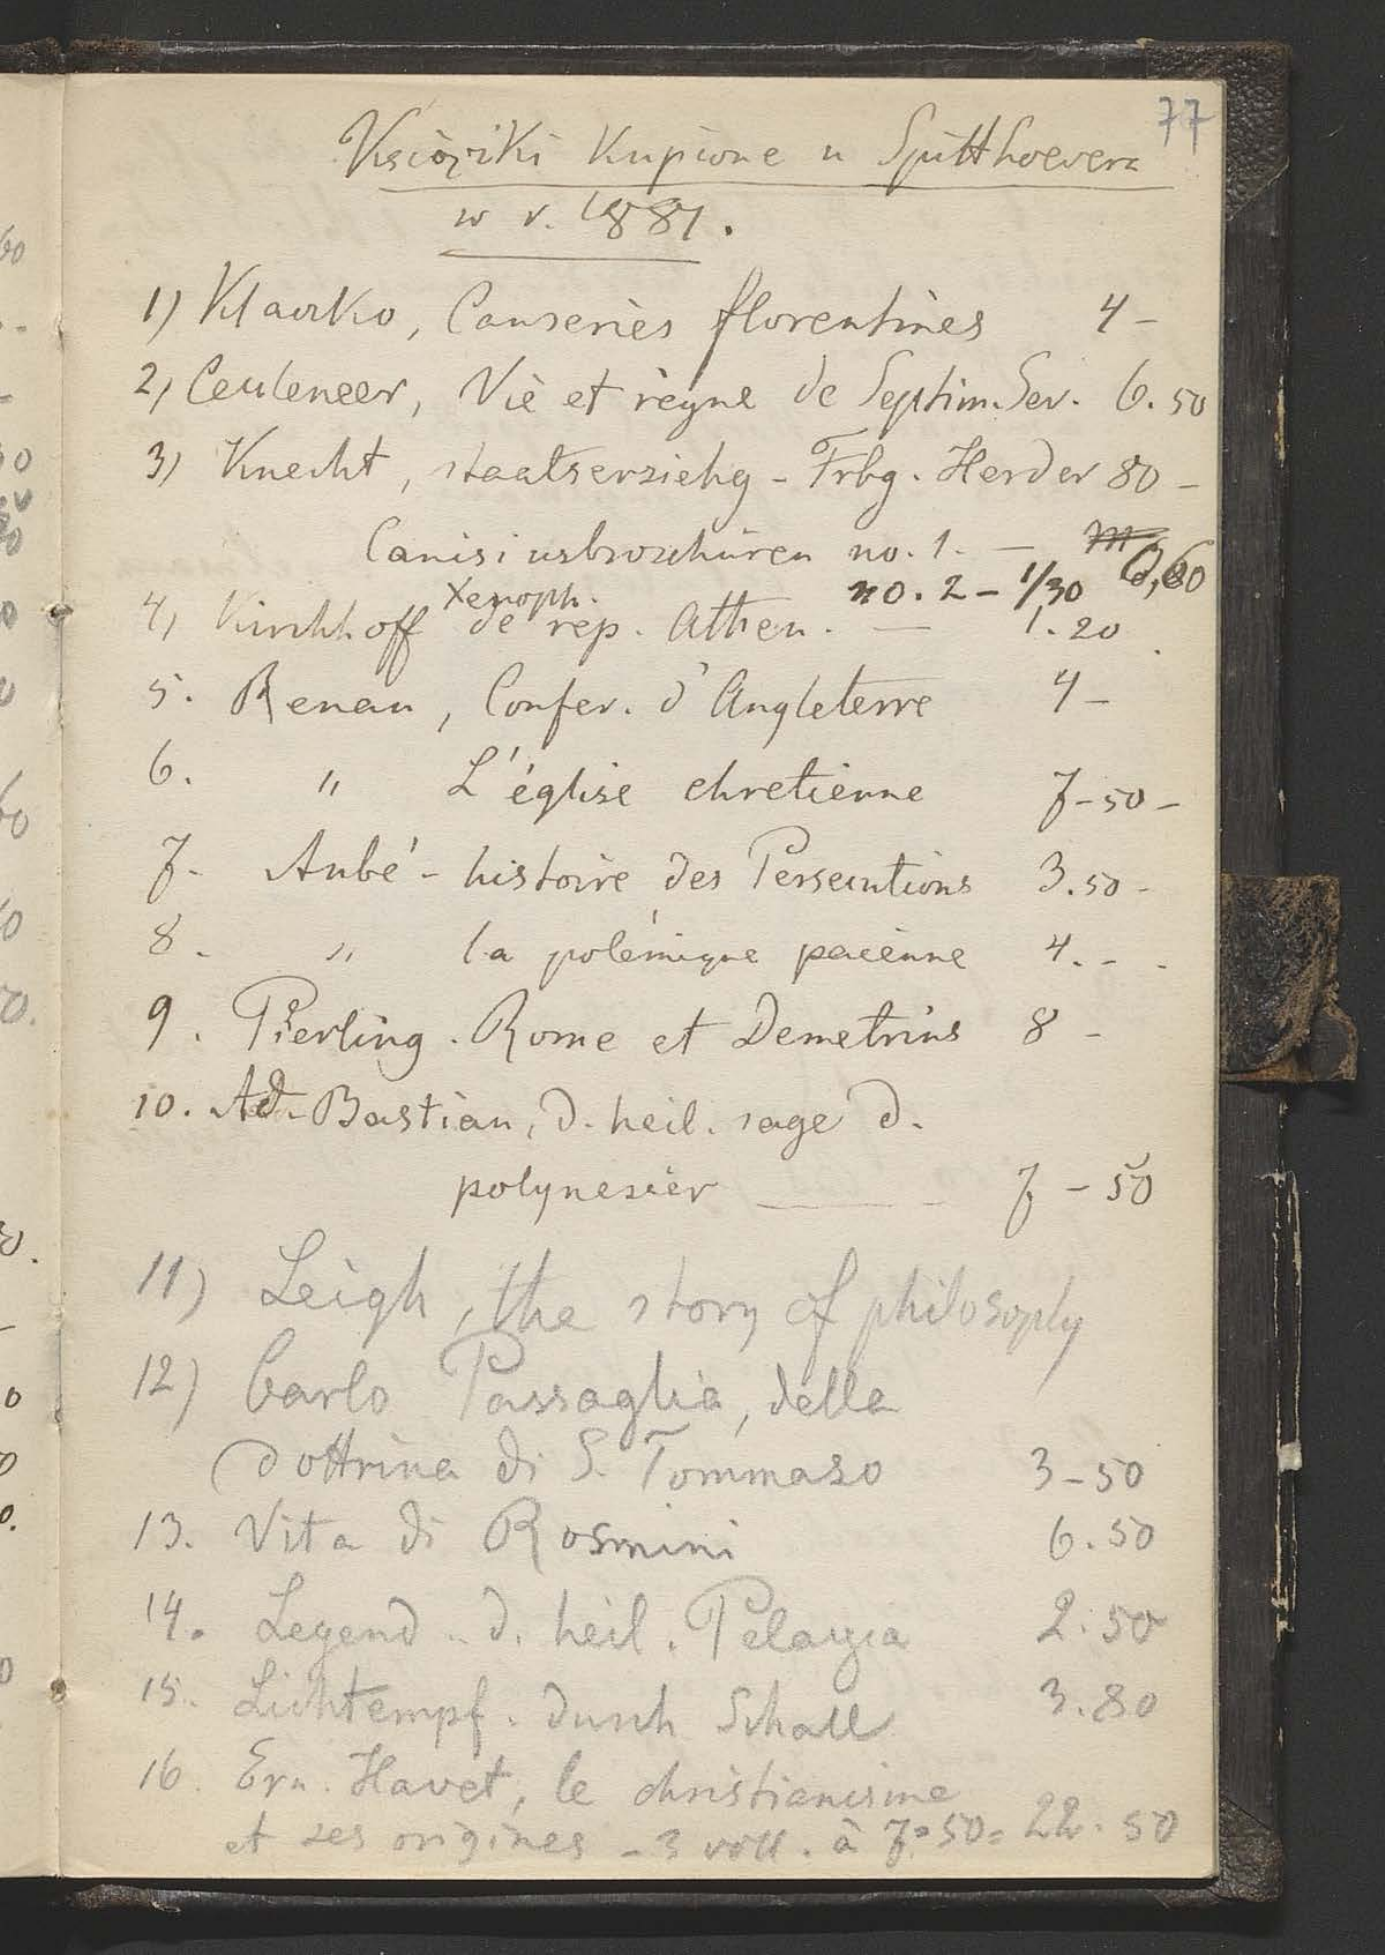 77
Książki kupione u Spitthoevera
w r. 1881.
1) Klaczko, Causeries florentines 4 -
2) Ceuleneer, Vie et règne de Septim. Sev. 6.50
3) Knecht, staatserziehg - Frbg. Herder 80 -
Canisiusbroschüren no. 1. - 0,60
no. 2 - 1/30
4) Kirchhoff Xenoph. de rep. Athen. - 1.20
5. Renan, Confer. d'Angleterre 4 -
6. " L'église chretienne 7 - 50 -
7. Aubé - histoire des Persecutions 3.50 -
8. " la polémique paienne 4. - -
9. Pierling. Rome et Demetrius 8 -
10. Ad. Bastian, d. heil. sage d.
polynesier - 7 - 50
11) Leigh, the story of philosophy
12) Carlo Passaglia, della
dottrina di S. Tommaso 3 - 50
13. Vita di Rosmini 6.50
14. Legend. d. heil. Pelagia 2.50
15. Lichtempf. durch Schall 3.80
16. Ern. Havet, le christianisme
et ses origines - 3 voll. à 7.50 = 22.50